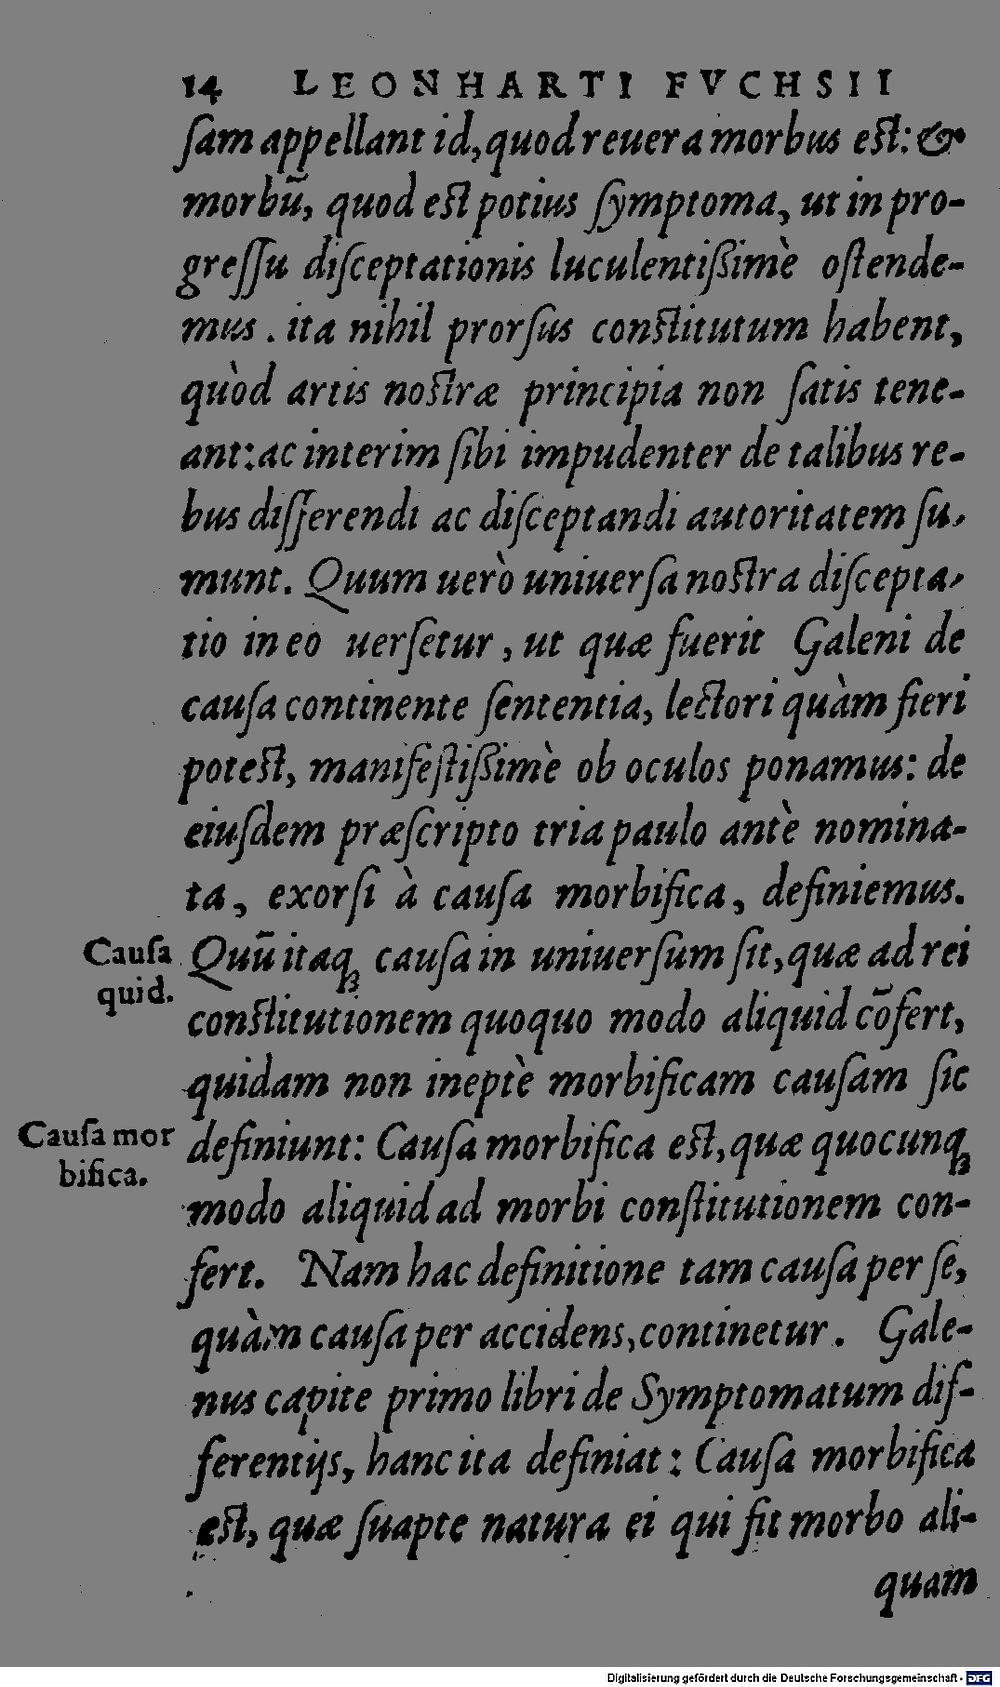 14 LEONHARTI FVCHSII
ſam appellant id, quod reuera morbus eſt: &
morbũ, quod eſt potius ſymptoma, ut in pro-
greſſu diſceptationis luculentißimè oſtende-
mus. ita nihil prorſus conſtitutum habent,
quòd artis noſtræ principia non ſatis tene-
ant: ac interim ſibi impudenter de talibus re-
bus diſſerendi ac diſceptandi autoritatem ſu-
munt. Quum uerò uniuerſa noſtra diſcepta-
tio in eo uerſetur, ut quæ fuerit Galeni de
cauſa continente ſententia, lectori quàm fieri
poteſt, manifeſtißimè ob oculos ponamus: de
eiuſdem præſcripto tria paulo antè nomina-
ta, exorſi à cauſa morbifica, definiemus.
Cauſa quid.
Quũ itaqꝫ cauſa in uniuerſum ſit, quæ ad rei
conſtitutionem quoquo modo aliquid cõfert,
quidam non ineptè morbificam cauſam ſic
Cauſa mor
bifica.
definiunt: Cauſa morbifica eſt, quæ quocunqꝫ
modo aliquid ad morbi conſtitutionem con-
fert. Nam hac definitione tam cauſa per ſe,
quàm cauſa per accidens, continetur. Gale-
nus capite primo libri de Symptomatum dif-
ferentijs, hanc ita definiat: Cauſa morbifica
eſt, quæ ſuapte natura ei qui fit morbo ali-
quam
Digitalisierung gefördert durch die Deutsche Forschungsgemeinschaft - DFG